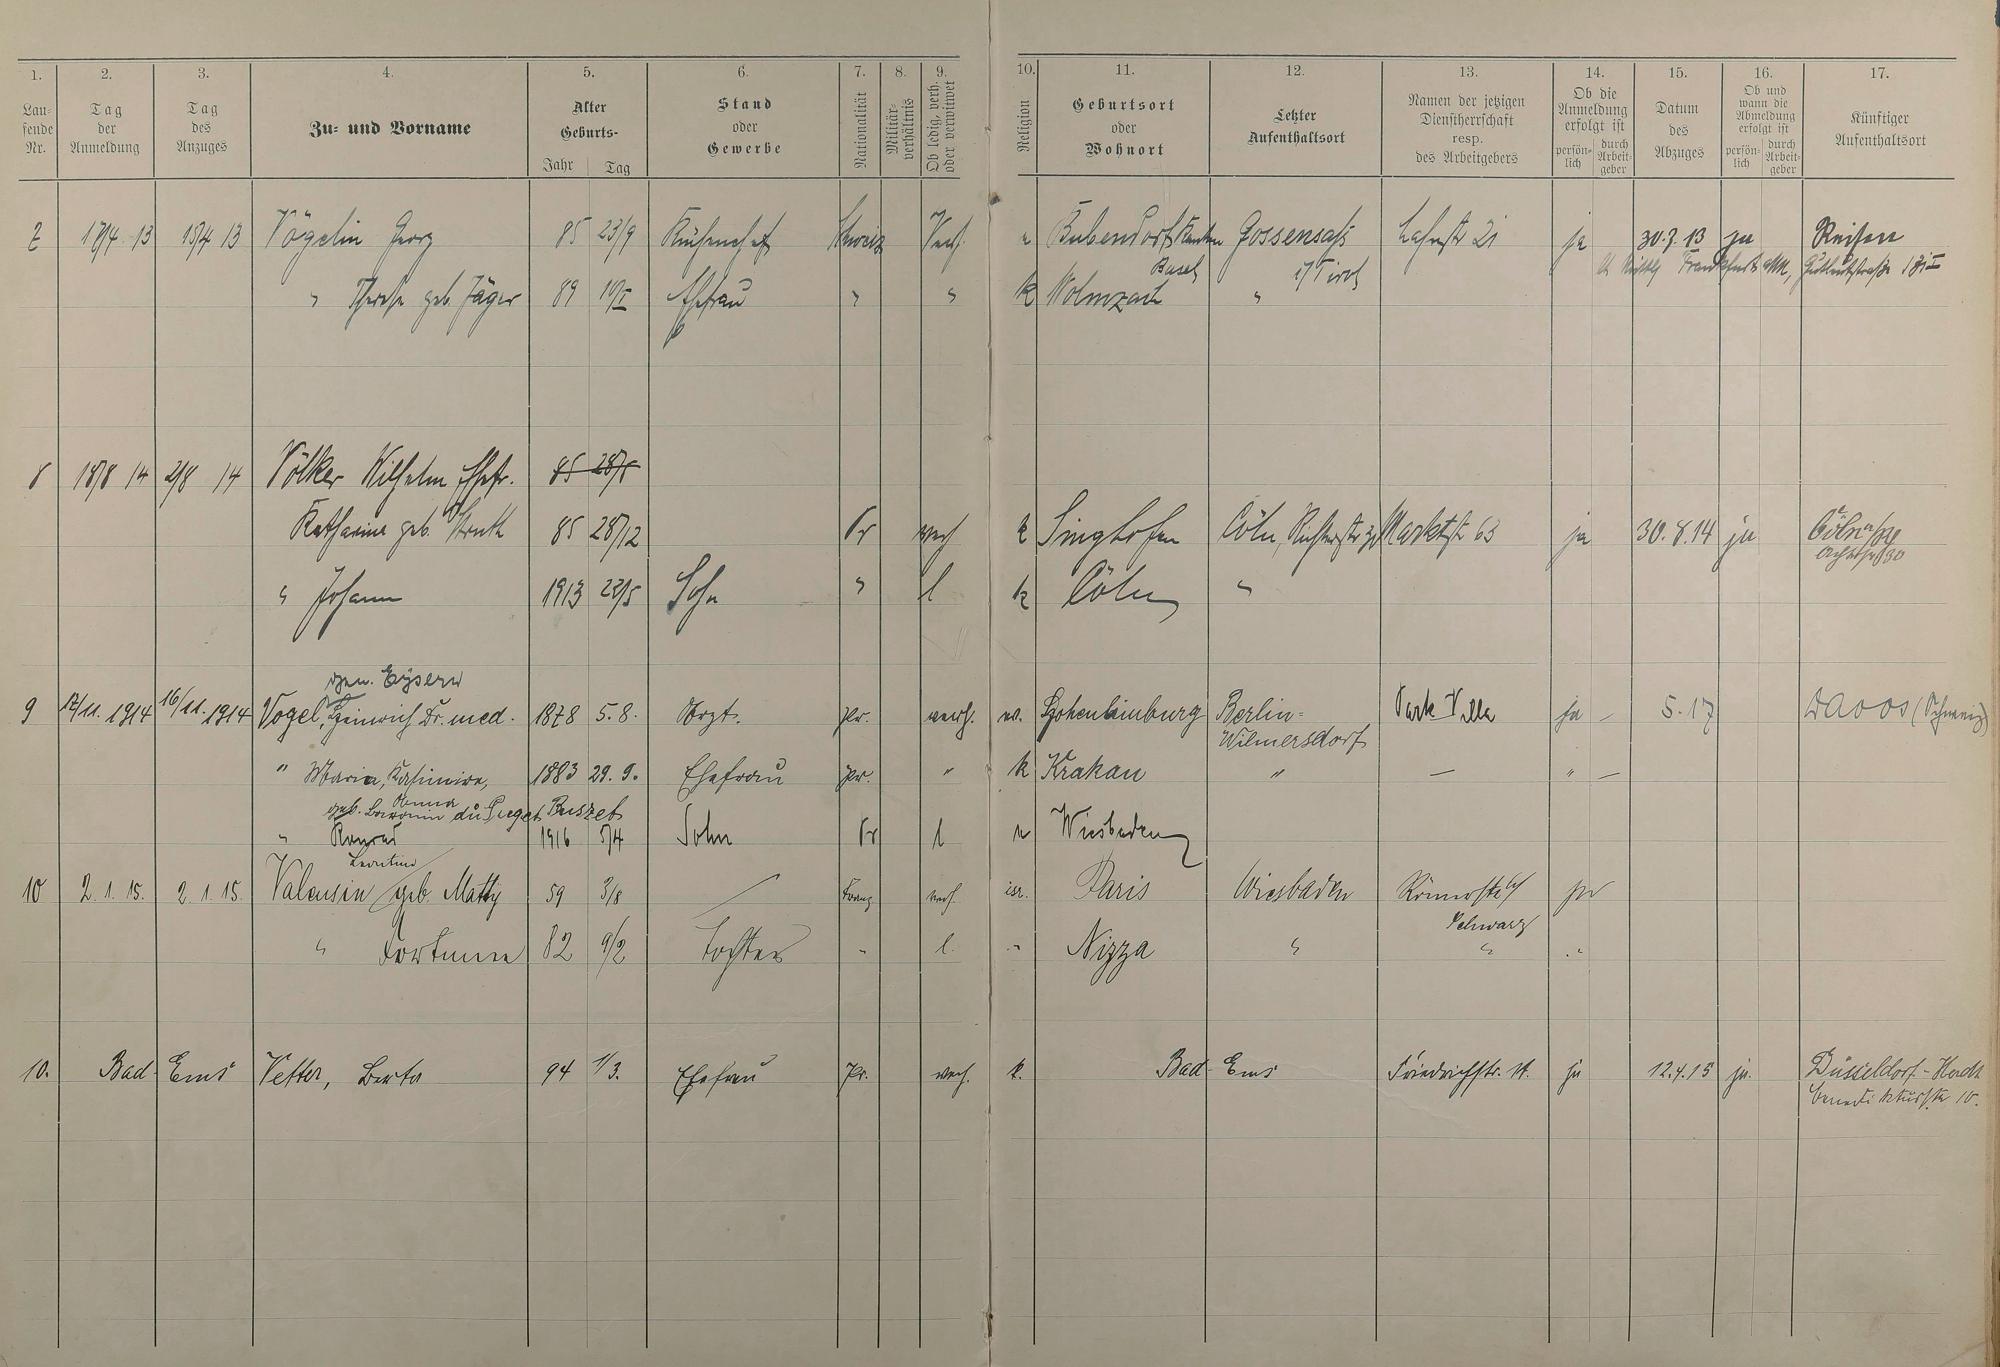 1. 2. 3. 4. 5. 6. 7. 8. 9. 10. 11. 12. 13. 14. 15. 16. 17.
Lau-
fende
Nr.
Tag
der
Anmeldung
Tag
des
Anzuges
Zu- und Vorname
Alter
Geburts-
Jahr Tag
Stand
oder
Gewerbe
Nationalität
Militär-
verhältnis
Ob ledig, verh.
oder verwitwet
Religion
Geburtsort
oder
Wohnort
Letzter
Aufenthaltsort
Namen der jetzigen
Dienstherrschaft
resp.
des Arbeitgebers
Ob die
Anmeldung
erfolgt ist
persön-
lich
durch
Arbeit-
geber
Datum
des
Abzuges
Ob und
wann die
Abmeldung
erfolgt ist
persön-
lich
durch
Arbeit-
geber
Künftiger
Aufenthaltsort
7 17/4 13 15/4 13 Vögelin Georg 85 23/9 Küchenchef Schweiz Verh. Bubendorf Kanton Gossensaß Lahnstr 21 ja 30.7.13 ja Reisen
Basel i/Tirol Frankfurt a/M,
" Therese geb. Jäger 89 Ehefrau " " k Wolnzach "
8 18/8 14 2/8 14 Völker Wilhelm Ehefr. 85
Katharina geb. Struth 85 28/12 Pr verh k Singhofen Cöln, Marktstr 63 ja 30.8.14 ja Cöln
" Johann 1913 22/5 Sohn " l k Cöln "
gen. Eysern
9 17/11. 1914 16/11. 1914 Vogel, Heinrich Dr. med. 1878 5.8. Arzt. Pr. verh. ev. Hohenlimburg Berlin- Park Villa ja – 5.17 Davos (Schweiz)
Wilmersdorf
" Maria, Kasimira, 1883 29.9. Ehefrau Pr. " k Krakau " — " —
Anna
geb. Baronin du Puget Puszet
" Konrad 1916 5/4 Sohn Pr l Wiesbaden
Leontine
10 2.1.15. 2.1.15. Valensin geb. Matty 59 3/8 Franz verh. isr. Paris Wiesbaden Römerstr ja
Schwarz
" Fortunee 82 9/2 Tochter " l. " Nizza " " "
10. Bad Ems Vetter, Berta 94 1/3. Ehefrau Pr. verh. k. Bad Ems Friedrichstr. 14. ja 12.4.15 ja. Düsseldorf-Heerdt